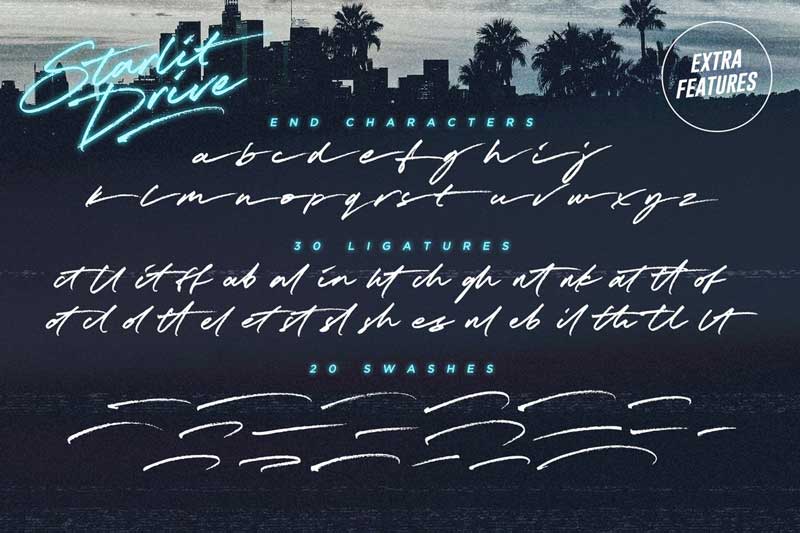 Starlit
Drive
EXTRA
FEATURES
END CHARACTERS
a b c d e f g h i j
k l m n o p q r s t u v w x y z
30 LIGATURES
ct ll it ff ab al in ht ch gh nt nk at tl of
ot cl ol tt el et st sl sh es nl eb il th tl lt
20 SWASHES